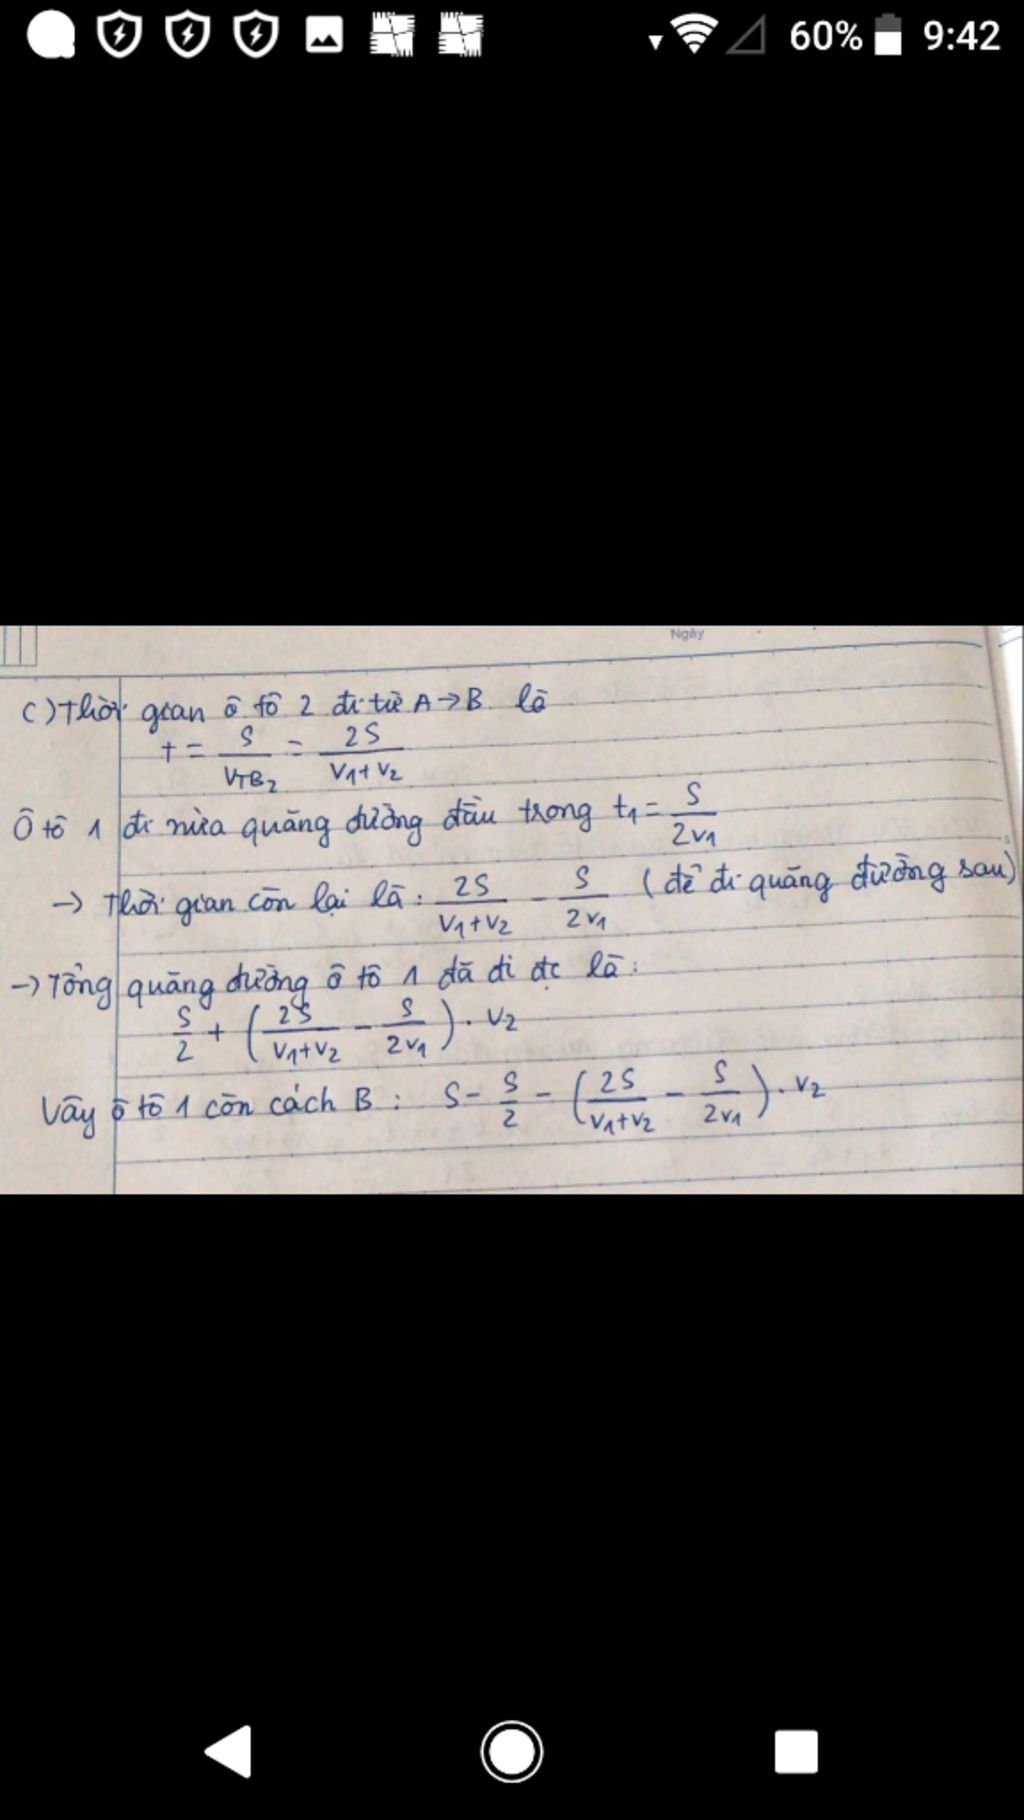 60% 9:42
Ngày
c) Thời gian ô tô 2 đi từ A → B là
t = S / VTB2 = 2S / (V1 + V2)
Ô tô 1 đi nửa quãng đường đầu trong t1 = S / 2V1
→ Thời gian còn lại là: 2S / (V1 + V2) - S / 2V1 (để đi quãng đường sau)
→ Tổng quãng đường ô tô 1 đã đi đc là:
S/2 + (2S / (V1 + V2) - S / 2V1) . V2
Vậy ô tô 1 còn cách B : S - S/2 - (2S / (V1 + V2) - S / 2V1) . V2